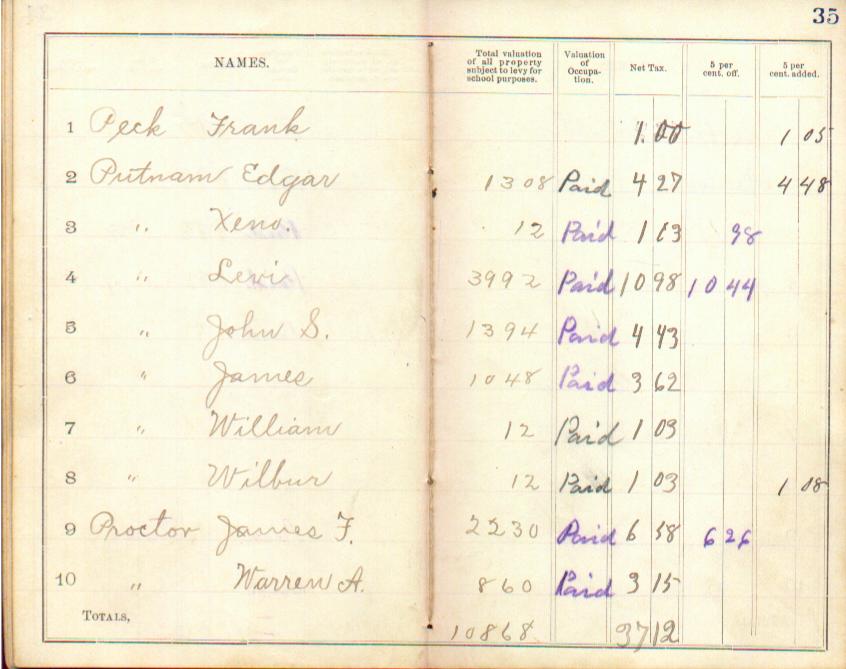 35
NAMES. Total valuation of all property subject to levy for school purposes. Valuation of Occupa-tion. Net Tax. 5 per cent. off. 5 per cent. added.
1 Peck Frank 1.00 1 05
2 Putnam Edgar 1308 Paid 4 27 4 48
3 " Xeno. 12 Paid 1 03 98
4 " Levi 3992 Paid 10 98 10 44
5 " John S. 1394 Paid 4 43
6 " James 1048 Paid 3 62
7 " William 12 Paid 1 03
8 " Wilbur 12 Paid 1 03 1 08
9 Proctor James F. 2230 Paid 6 58 6 26
10 " Warren A. 860 Paid 3 15
TOTALS, 10868 37 12